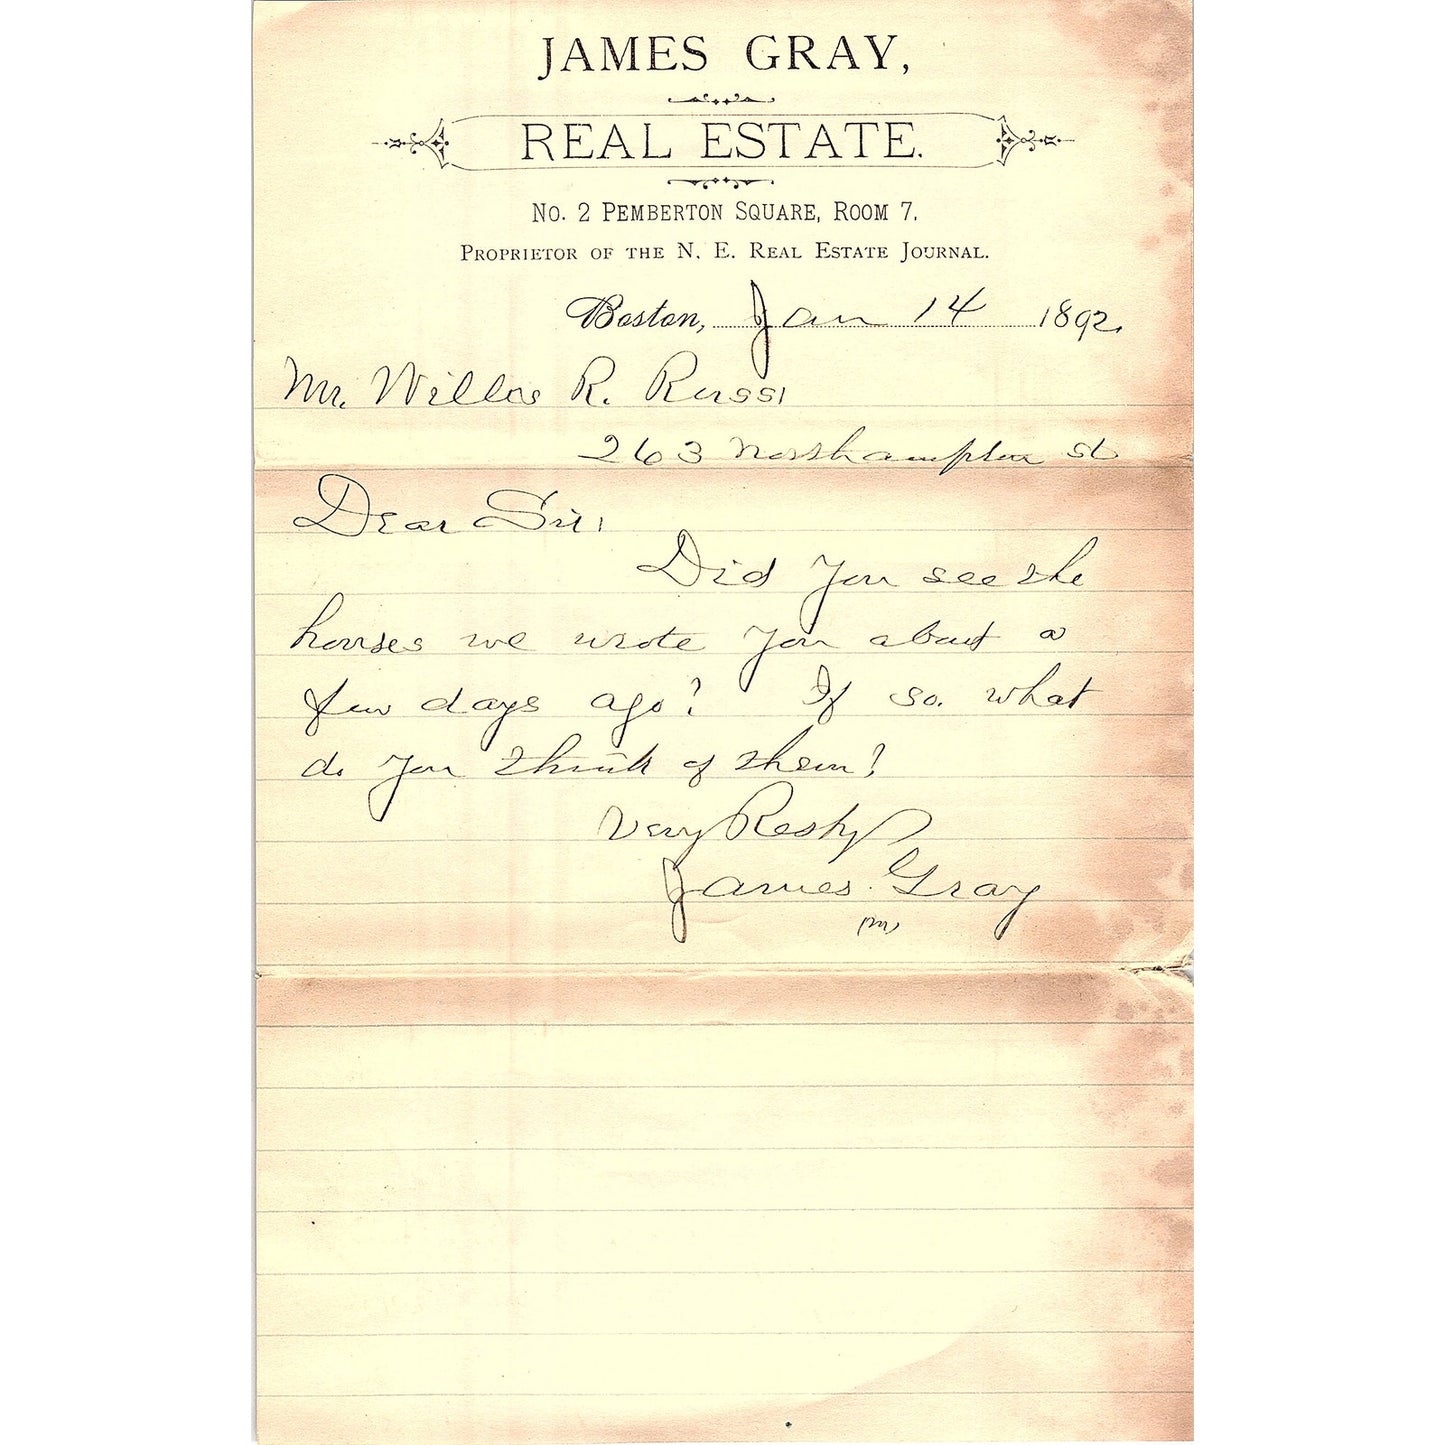 JAMES GRAY,
REAL ESTATE.
No. 2 Pemberton Square, Room 7.
Proprietor of the N. E. Real Estate Journal.
Boston, Jan 14 1892.
Mr. Willos R. Russ
263 Northampton st
Dear Sir:
Did you see the
houses we wrote you about a
few days ago? If so, what
do you think of them?
Very Respy
James Gray
(m)